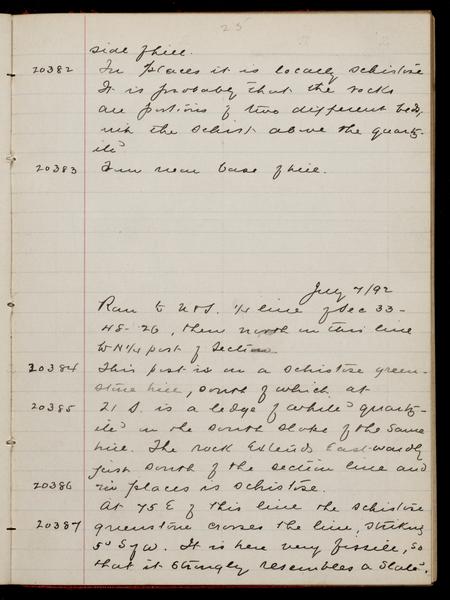 25
side of hill.
20382 In places it is locally schistose
It is probably that the rocks
are portions of two different beds,
with the schist above the quartz-
ite
20383 From near base of hill.
July 7/92
Ran to N & S. 1/4 line of Sec 33-
48-26, then north on this line
to N 1/4 post of Section
20384 This post is on a schistose green-
stone hill, south of which at
20385 21 S. is a ledge of white quartz-
ite on the south slope of the same
hill. The rock extends East-wardly
just south of the section line and
20386 in places is schistose.
At 75 E of this line the schistose
20387 greenstone crosses the line, striking
5° S of W. It is here very fissile, so
that it strongly resembles a slate.